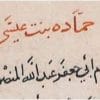 حمادة بنت عيسى
أم أبي جعفر عبد الله المنصور